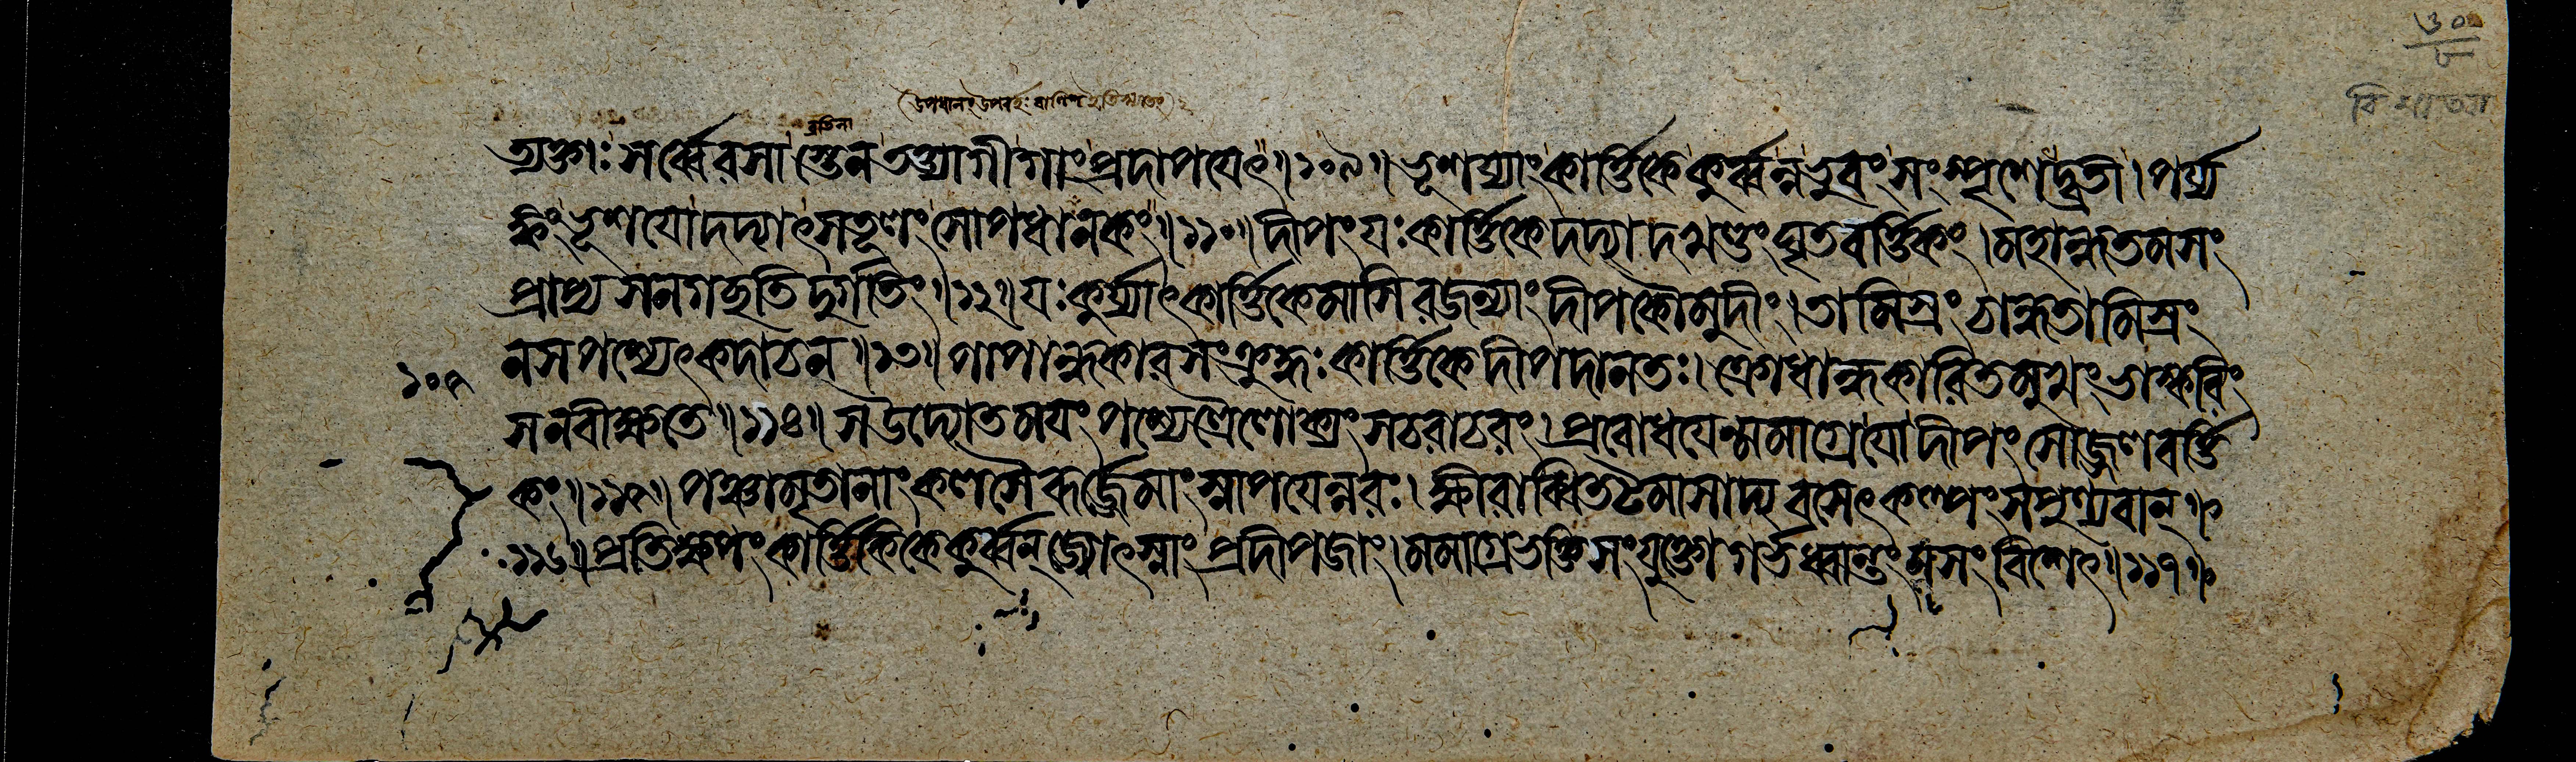 ৩০
৮
ব্রতিনা
ত্যক্তাঃ সর্ব্বে রসা স্তেন তত্যাগী গাং প্রদাপয়েৎ ॥ ১০৯ ॥ ভূশয্যাং কার্ত্তিকে কুর্ব্বন্ন ভুবং সংস্পৃশেদ্ব্রতী । পর্য্য
ঙ্কং ভূশয়ো দদ্যাৎ সতূলং সোপধানকং ॥ ১১০ ॥ দীপং যঃ কার্ত্তিকে দদ্যাদখণ্ডং ঘৃতবর্ত্তিকং । মহান্ধতমসং
প্রাপ্য স ন গচ্ছতি দুর্গতিং ॥ ১২ ॥ যঃ কুর্য্যাৎ কার্ত্তিকে মাসি রজন্যাং দীপকৌমুদীং । তামিস্রং চান্ধতামিস্রং
ন স পশ্যেৎ কদাচন ॥ ১৩ ॥ পাপান্ধকার সংক্রুদ্ধঃ কার্ত্তিকে দীপদানতঃ । ক্রোধান্ধকারিতমুখং ভাস্করিং
স ন বীক্ষতে ॥ ১১৪ ॥ স উদ্যোতময়ং পশ্যেত্ত্রৈলোক্যং সচরাচরং । প্রবোধয়েন্মমাগ্রে যো দীপং সোজ্জ্বলবর্ত্তি
কং ॥ ১১৫ ॥ পঞ্চামৃতানাং কলসৈরূর্জ্জে মাং স্নাপয়েন্নরঃ । ক্ষীরাব্ধিতটমাসাদ্য বসেৎ কল্পং স পুণ্যবান্ ॥
১১৬ ॥ প্রতিক্ষপং কার্ত্তিকিকে কুর্ব্বন্ জ্যোৎস্নাং প্রদীপজাং । মমাগ্রে ভক্তিসংযুক্তো গর্ভধ্বান্তং ন সংবিশেৎ ॥ ১১৭ ॥